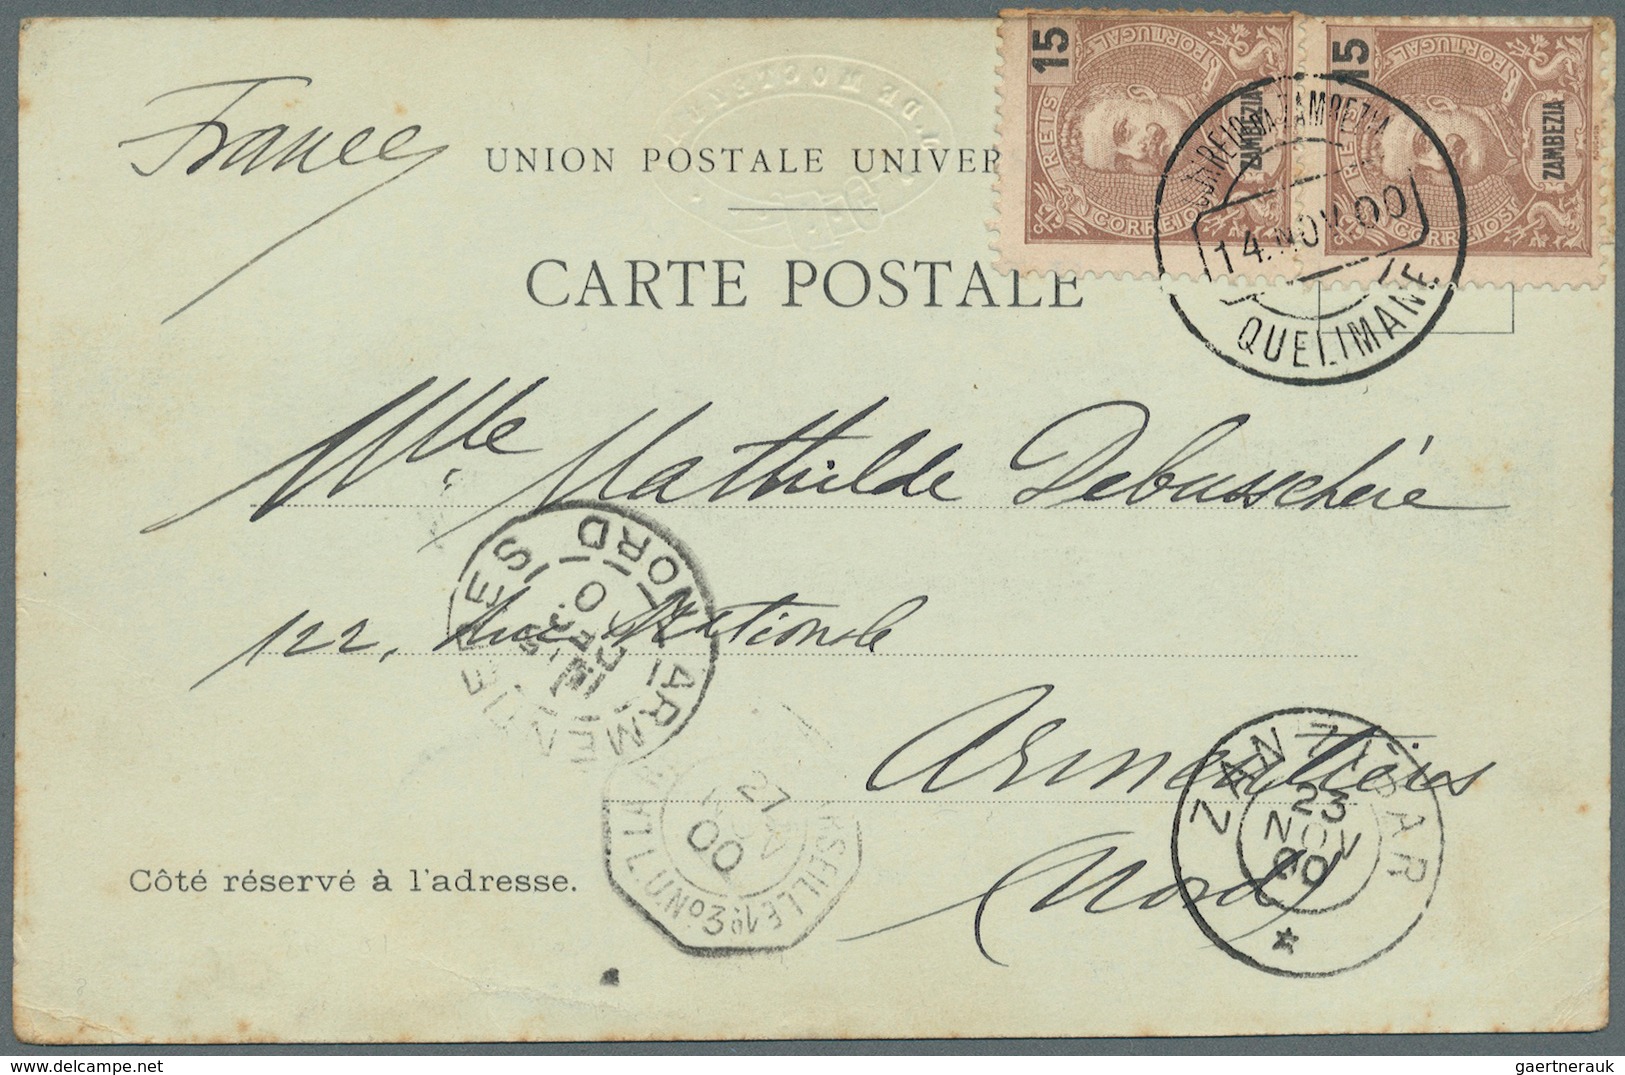 France
UNION POSTALE UNIVER
CARTE POSTALE
15
REIS
PORTUGAL
CORREIOS
ZAMBEZIA
15
REIS
PORTUGAL
CORREIOS
ZAMBEZIA
CORREIO DA ZAMBEZIA
14.NOV.00
QUELIMANE
Mlle Mathilde Debusschère
122, Rue Nationale
Armentières
Nord
ARMENTIERES
NORD
27
NOV
00
MARSEILLE
LA
L.U.Nº3
ZANZIBAR
23
NOV
00
Côté réservé à l'adresse.
gaertnerauk